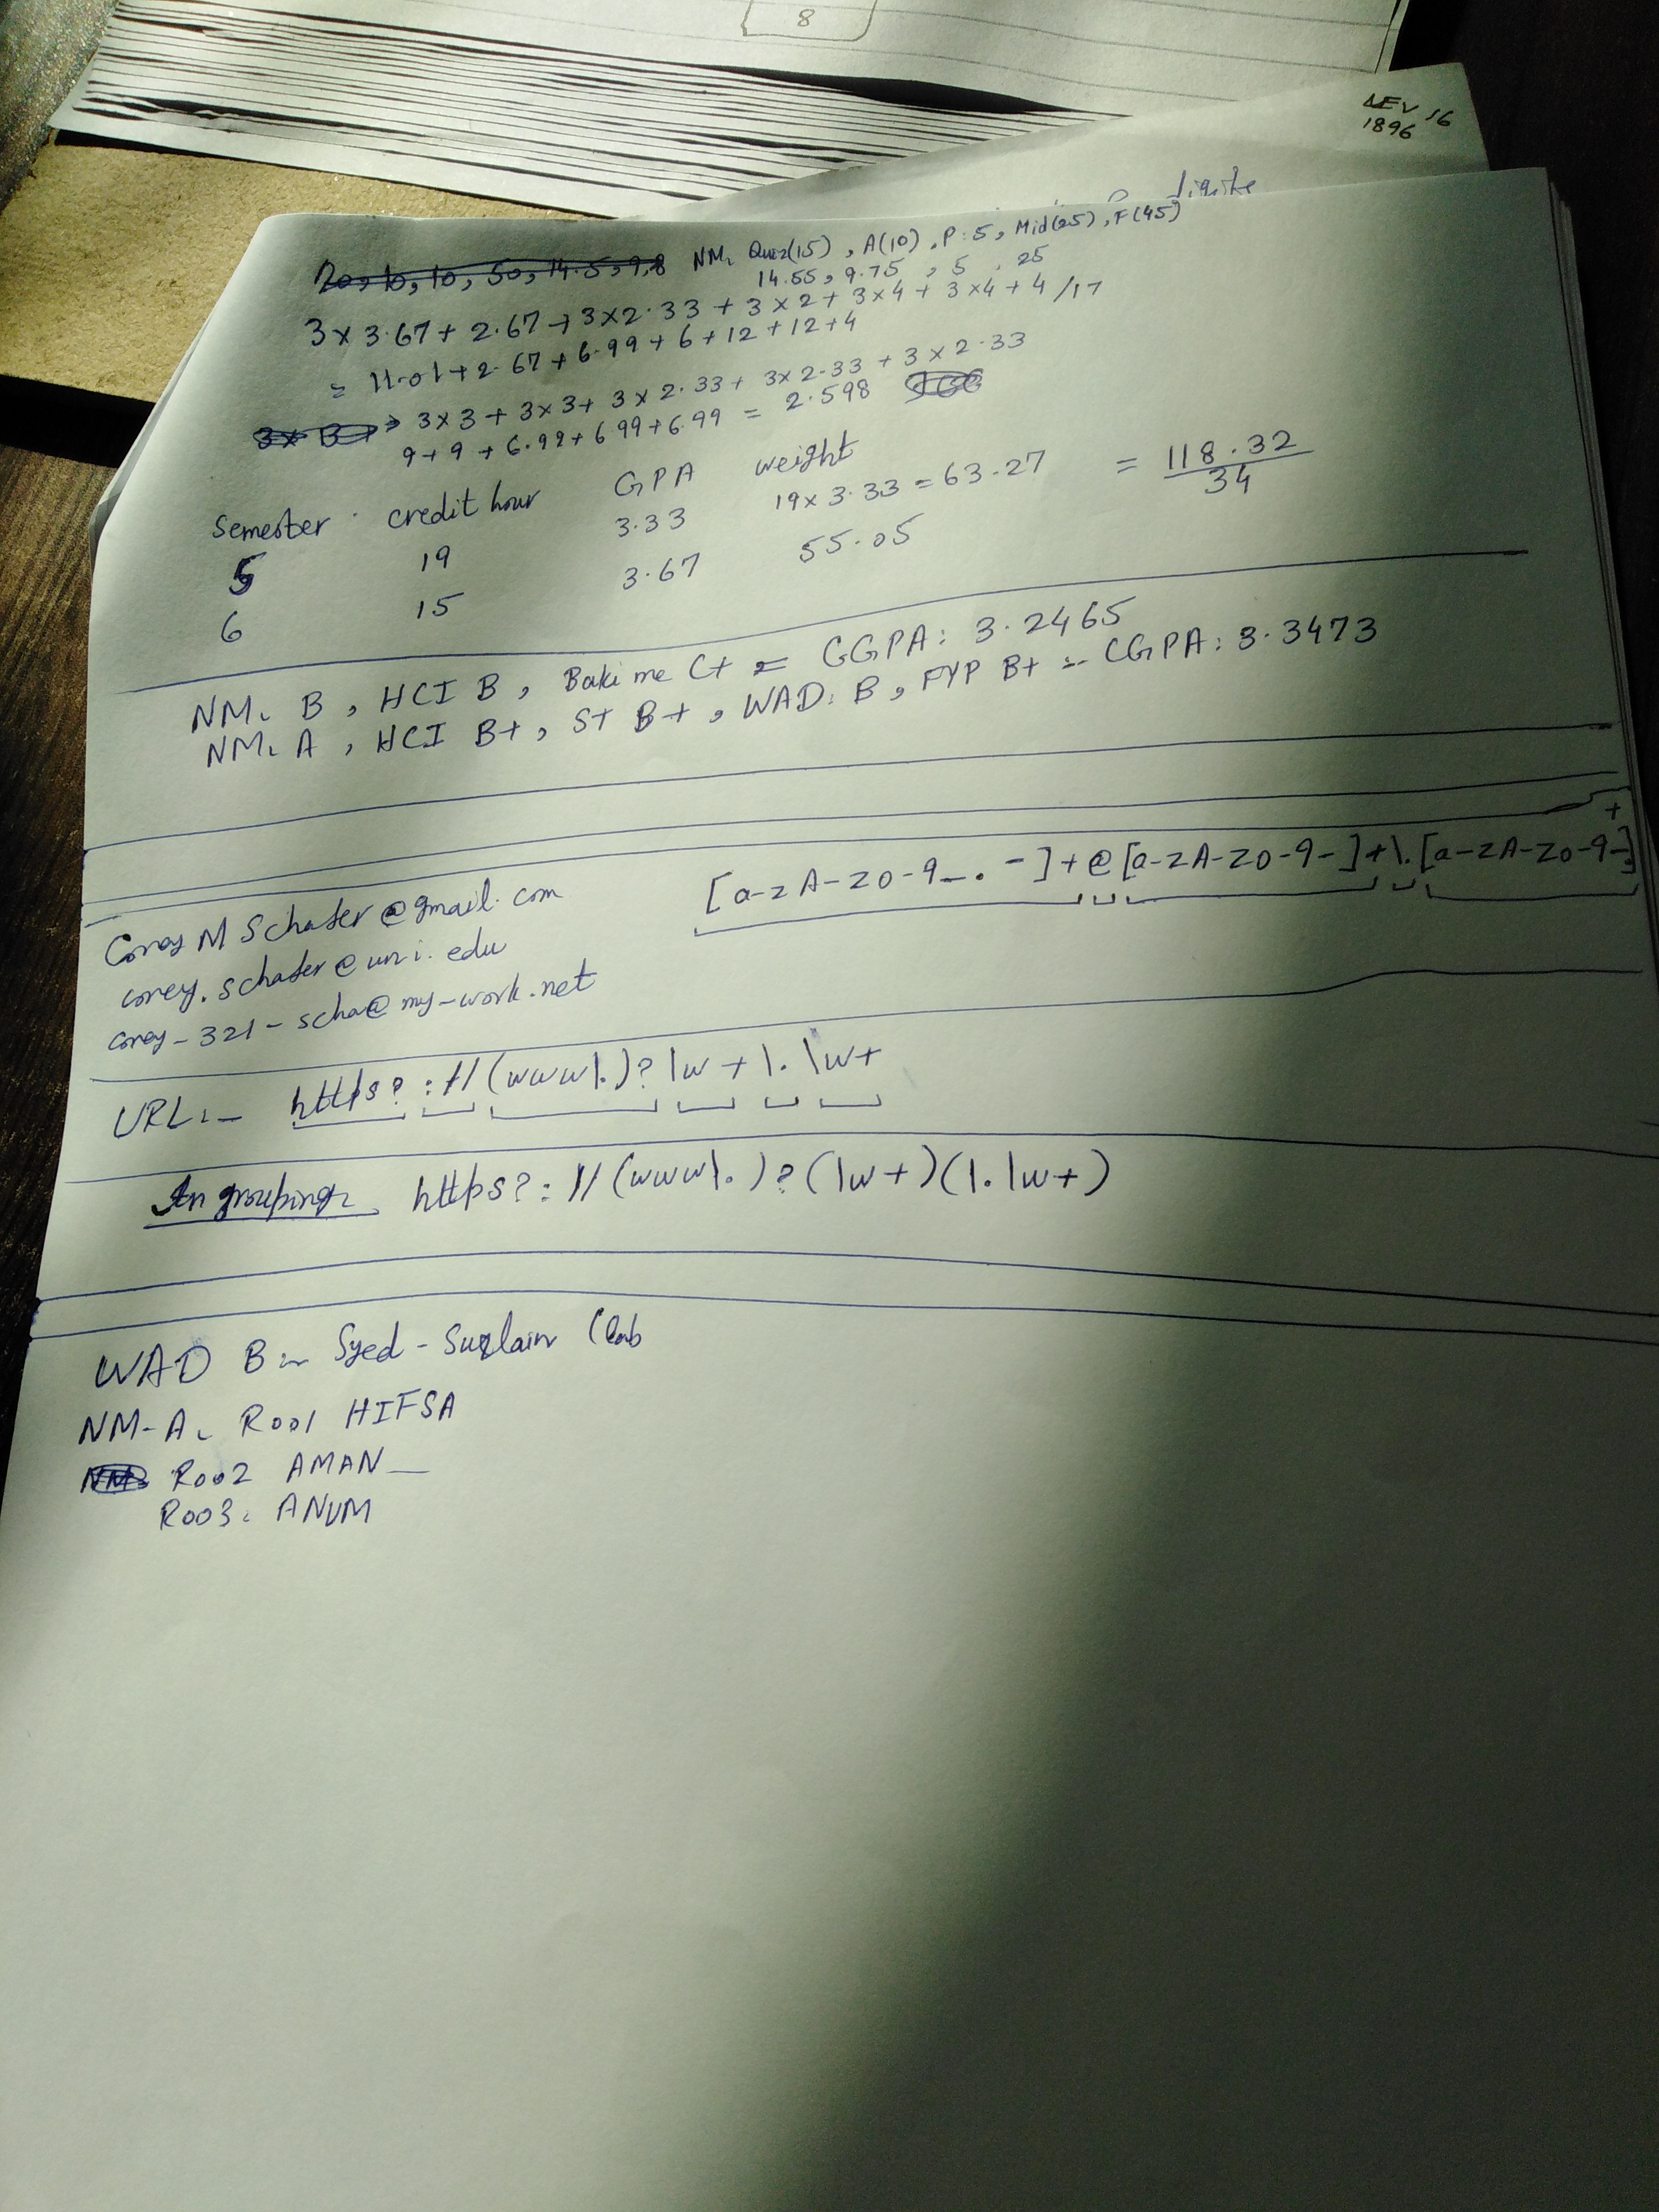 8
NEV 16
1896
digits
20, 10, 10, 50, 14.5, 9.8 NM: Quiz(15), A(10), P:5, Mid(25), F(45)
14.55, 9.75, 5, 25
3x3.67+2.67+3x2.33+3x2+3x4+3x4+4/17
= 11.01+2.67+6.99+6+12+12+4
3x3+3x3+3x2.33+3x2.33+3x2.33
9+9+6.99+6.99+6.99 = 2.598
semester credit hour GPA weight
5 19 3.33 19x3.33=63.27 = 118.32/34
6 15 3.67 55.05
NM: B, HCI B, Baki me C+ = CGPA: 3.2465
NM: A, HCI B+, ST B+, WAD: B, FYP B+ :- CGPA: 3.3473
[a-zA-Z0-9_.-]+@[a-zA-Z0-9-]+\.[a-zA-Z0-9-.]+
Corey M Schafer@gmail.com
corey.schafer@uni.edu
corey-321-scha@my-work.net
URL:- https?://(www\.)?\w+\.\w+
In grouping: https?://(www\.)?(\w+)(\.\w+)
WAD B:- Syed-Suqlain (lab
NM-A: R001 HIFSA
R002 AMAN
R003: ANUM